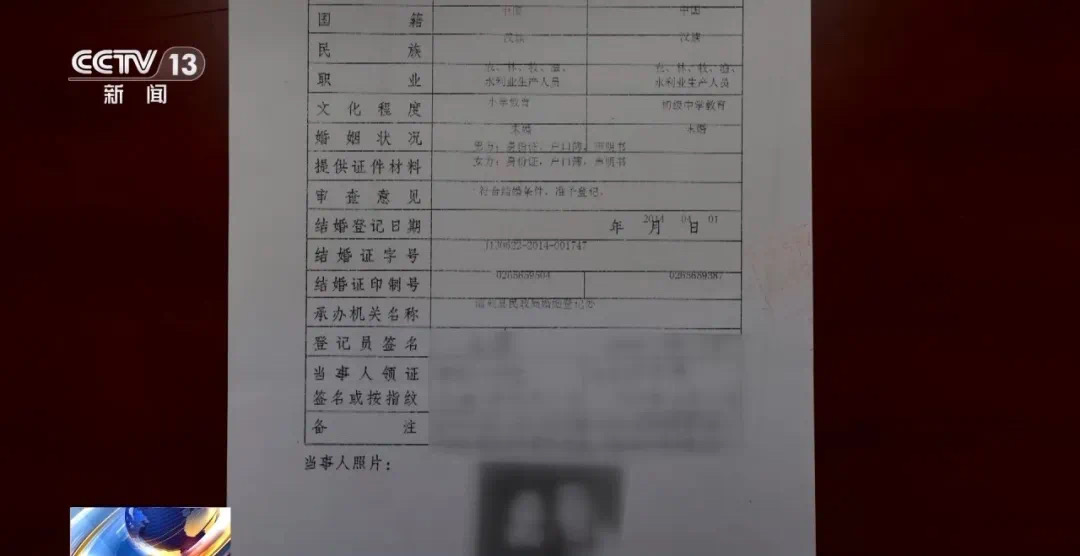 CCTV 13
新闻
国籍 中国 中国
民族 汉族 汉族
职业 农、林、牧、渔、水利业生产人员 农、林、牧、渔、水利业生产人员
文化程度 小学教育 初级中学教育
婚姻状况 未婚 未婚
提供证件材料 男方：身份证，户口薄，声明书
女方：身份证，户口薄，声明书
审查意见 符合结婚条件，准予登记。
结婚登记日期 2014 04 01
年 月 日
结婚证字号 J130622-2014-001747
结婚证印制号
承办机关名称
登记员签名
当事人领证
签名或按指纹
备注
当事人照片：